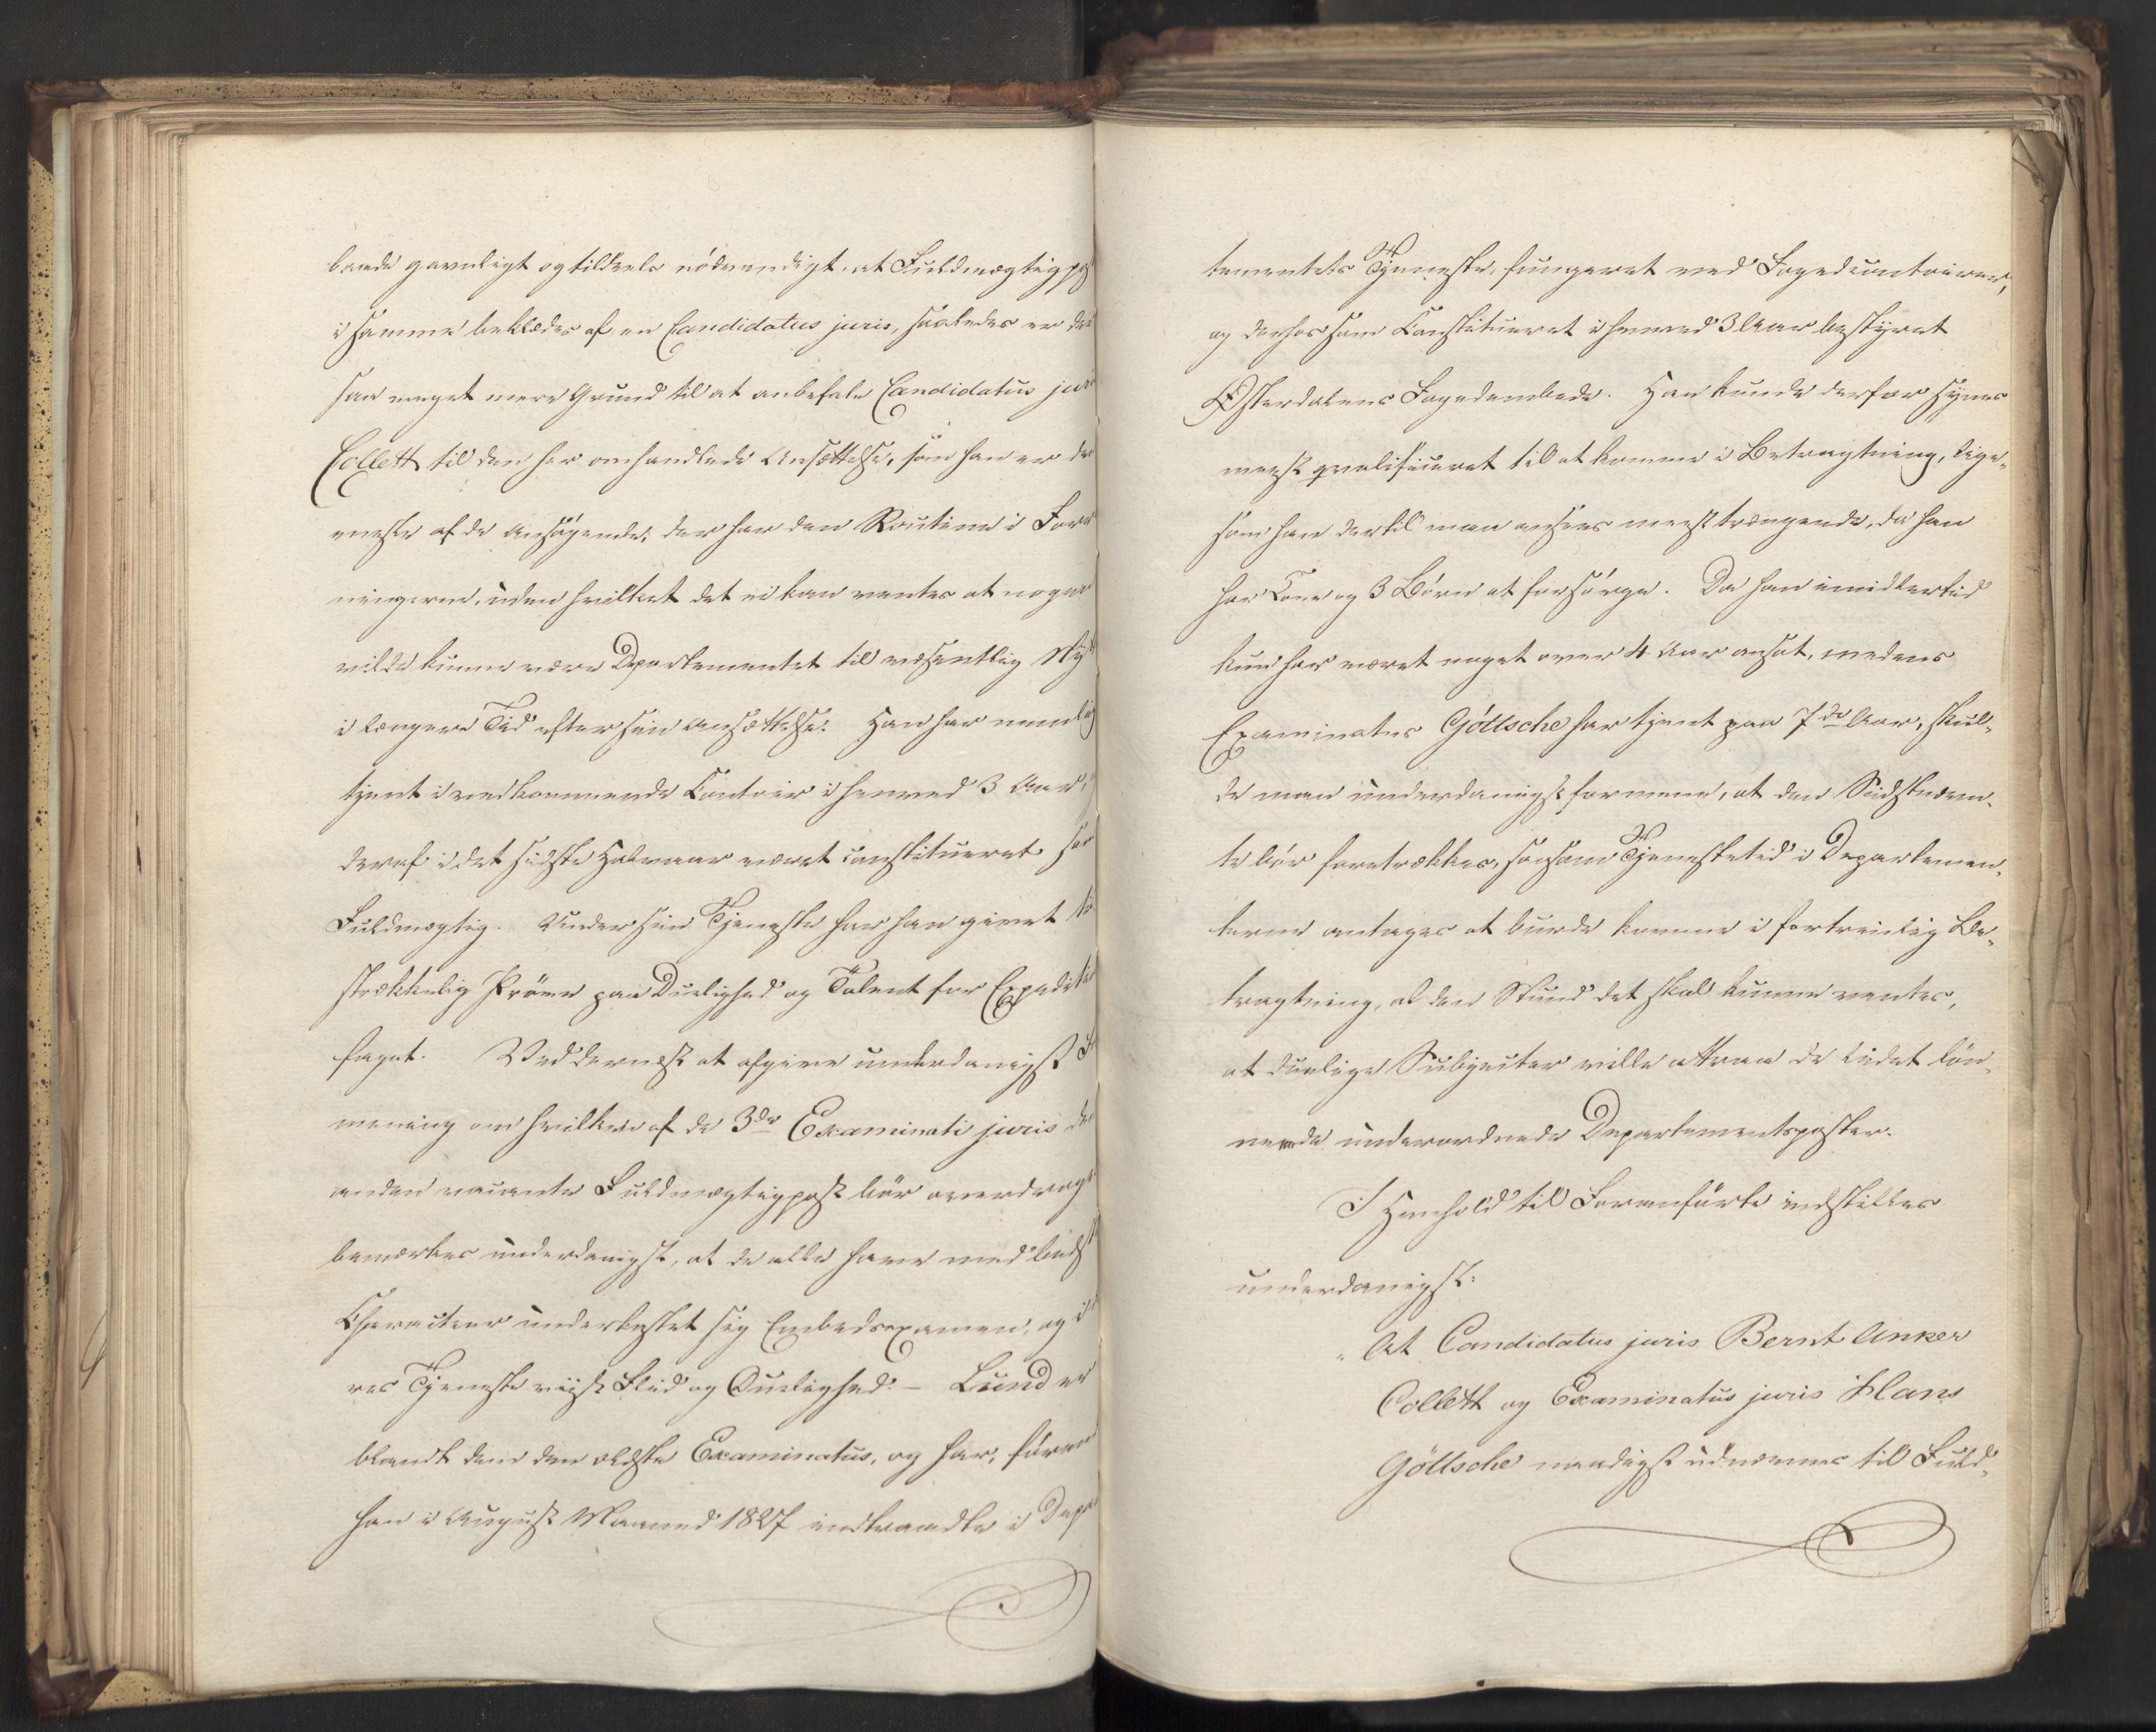 baade gavnligt og tildeels nödvendigt, at Fuldmægtigpos
i samme beklædes af en Candidatus juris, saaledes er der
saa meget mere Grund til at anbefale Candidatus juri
Collett til den her omhandlede Ansættelse, som han er den
eneste af de Ansögende, der har den Routine i Forr
ningerne, uden hvilket det ei kan ventes at nogen
vilde kunne være Departementet til væsentlig Nyt
i længere Tid efter sin Ansættelse. Han har nemlig
tjent i vedkommende Contoir i henved 3 Aar,
deraf i det sidste Halvaar været constitueret som
Fuldmægtig. Under sin Tjeneste har han givet til
strækkelig Pröve paa Duelighed og Talent for Expeditio
faget. Ved dernæst at afgive underdanigst For
mening om hvilken af de 3de Examinati juris den
anden vacante Fuldmægtigpost bör overdrages
bemærkes underdanigst, at de alle have med bedst
Characteer underkastet sig Embedsexamen, og i de
res Tjeneste viist Flid og Duelighed. - Lund er
blandt dem den ældste Examinatus, og har, förend
han i August Maaned 1827 indtraadte i Depar
tementets Tjeneste, fungeret ved Fogedcontoirer,
og derhos som Constitueret i henved 3 Aar bestyret
Østerdalens Fogedembede. Han kunde derfor synes
meest qvalificeret til at komme i Betragtning, lige-
som han dertil maa ansees meest trængende, da han
har Kone og 3 Börn at forsörge. Da han imidlertid
kun har været noget over 4 Aar ansat, medens
Examinatus Göttsche har tjent paa 7de Aar, skul-
de man underdanigst formene, at den Sidstnævn-
te bör foretrækkes, saasom Tjenestetid i Departemen-
terne antages at burde komme i fortrinlig Be-
tragtning, al den Stund det skal kunne ventes,
at duelige Subjecter ville attraa de lidet lön-
nende underordnede Departementsposter.
I Henhold til Foranförte indstilles
underdanigst:
"At Candidatus juris Bernt Anker
Collett og Examinatus juris Hans
Göttsche naadigst udnævnes til Fuld-